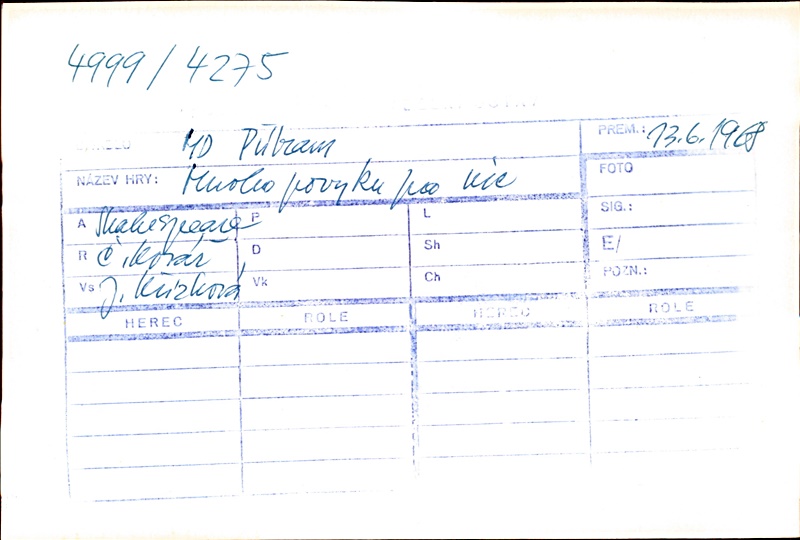 4999/4275
MD Příbram
PREM.: 13.6.1968
NÁZEV HRY: Mnoho povyku pro nic
FOTO
A Shakespeare P L
SIG.:
R Č. Kovář D Sh
E/
Vs J. Křížková Vk Ch
POZN.:
HEREC ROLE HEREC ROLE